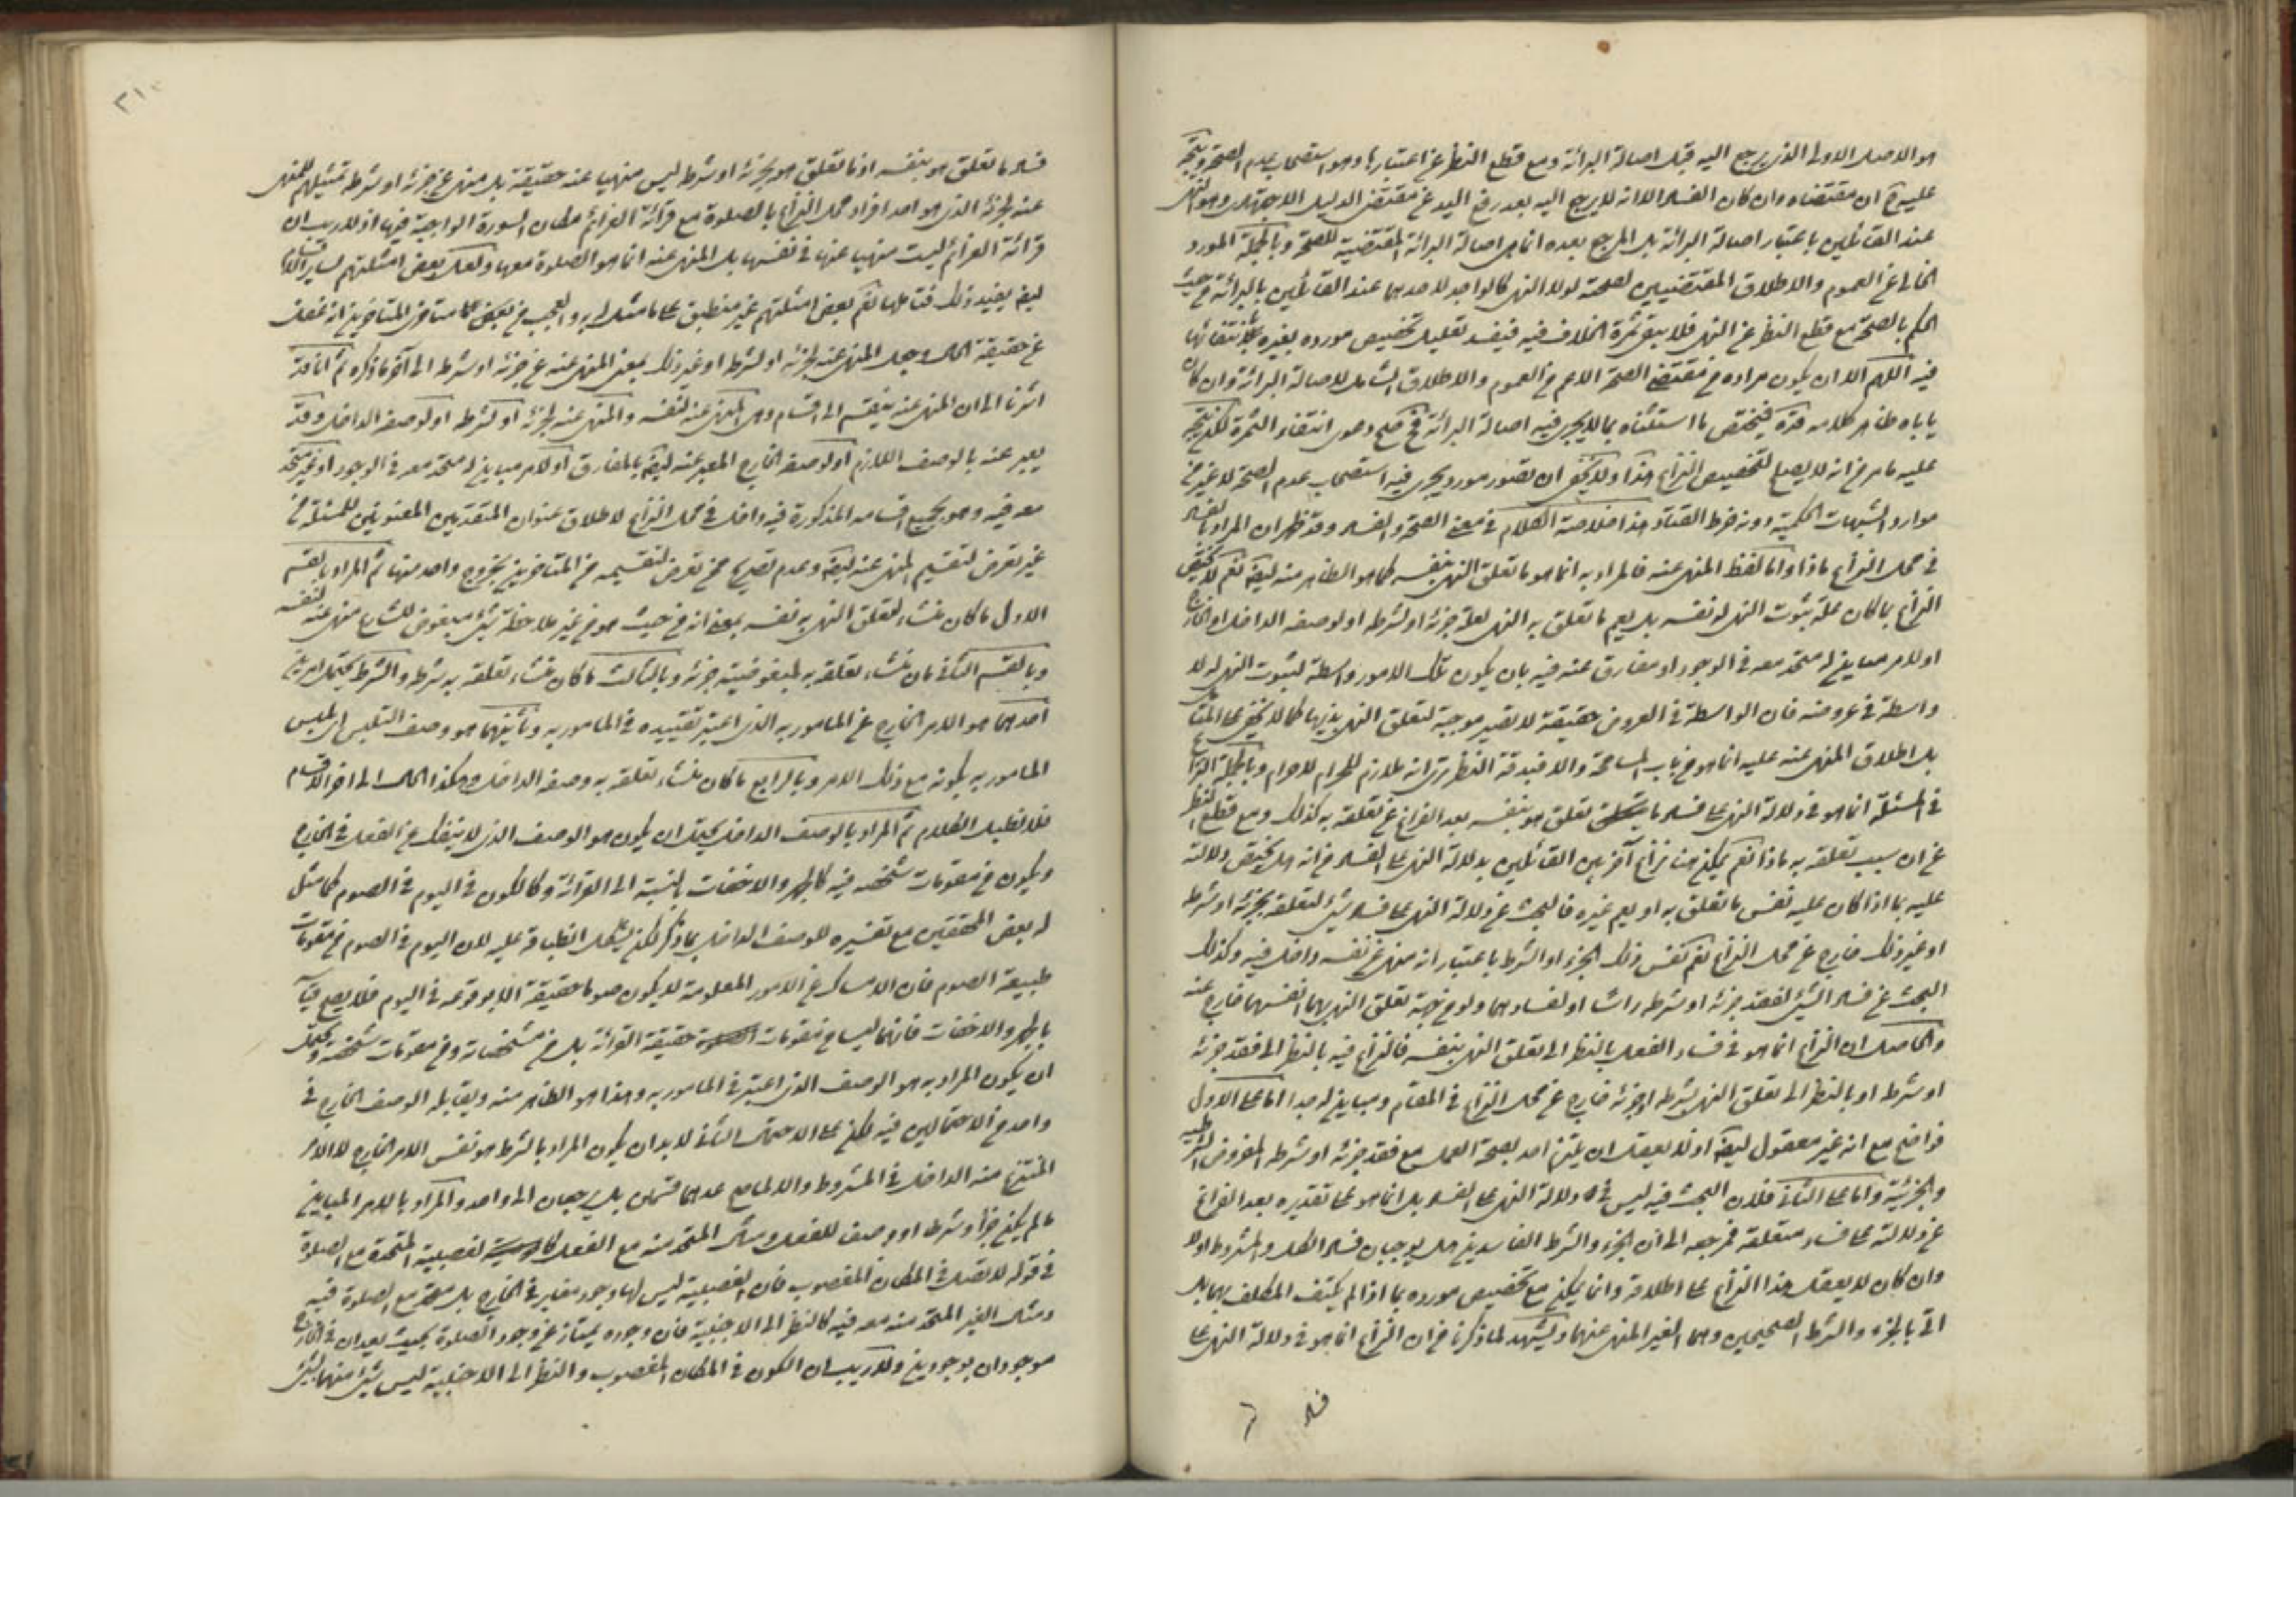 هو الاصل الاولى الذى يرجع اليه قبل اصالة البرائة ومع قطع النظر عن اعتبارها وهو استصحاب عدم الصحة ويتجه
عليه ح ان مقتضاه وان كان الفساد الا انه لا يرجع اليه بعد رفع اليد عن مقتضى الدليل الاجتهادى وهو النهى
عند القائلين باعتبار اصالة البرائة بل المرجع بعده انما هى اصالة البرائة المقتضية للصحة وبالجملة المورد
الخالى عن العموم والاطلاق المقتضيين لصحته لولا النهى كالواجد لاحدهما عند القائلين بالبرائة من حيث
الحكم بالصحة مع قطع النظر عن النهى فلا يبقى ثمرة الخلاف فيه فيفسد تعليل تخصيص مورده بغيره بانتفائها
فيه اللهم الا ان يكون مراده من مقتضى الصحة الاعم من العموم والاطلاق الشامل لاصالة البرائة وان كان
ياباه ظاهر كلامه قده فيختص ما استثناه بما لا يجرى فيه اصالة البرائة فح صح دعوى انتفاء الثمرة لكن يتجه
عليه ما مر من انه لا يصلح لتخصيص النزاع هذا ولا يخفى ان تصور مورد يجرى فيه استصحاب عدم الصحة لا غير من
موارد الشبهات الحكمية دونه خرط القتاد هذا خلاصة الكلام فى معنى الصحة والفساد وقد ظهر ان المراد بالفساد
فى محل النزاع ماذا واما لفظ المنهى عنه فالمراد به انما هو ما تعلق النهى بنفسه كما هو الظاهر منه ايضا نعم لا يختص
النزاع بما كان علة ثبوت النهى له نفسه بل يعم ما تعلق به النهى لعلة جزئه او لشرطه او لوصفه الداخل او الخارج
او لامر مباين له متحد معه فى الوجود او مفارق عنه فيه بان يكون تلك الامور واسطة لثبوت النهى له لا
واسطة فى عروضه فان الواسطة فى العروض حقيقة لا تصير موجبة لتعلق النهى بذيها كما لا يخفى على المتأمل
بل اطلاق المنهى عنه عليه انما هو من باب المسامحة والا فبدقة النظر ترى انه ملازم للحرام لا حرام وبالجملة النزاع
فى المسئلة انما هو فى دلالة النهى على فساد ما تعلق هو بنفسه بعد الفراغ عن تعلقه به كذلك ومع قطع النظر
عن ان سبب تعلقه به ماذا نعم يمكن هنا نزاع آخر بين القائلين بدلالة النهى على الفساد من انه هل يختص دلالته
عليه بما اذا كان علية نفس ما تعلق به او يعم غيره فالبحث عن دلالة النهى على فساد شئ لتعلقه بجزئه او شرطه
او غير ذلك خارج عن محل النزاع نعم نفس ذلك الجزء او الشرط باعتبار انه منهى عن نفسه داخل فيه وكذلك
البحث عن فساد الشئ لفقد جزئه او شرطه راسا او لفسادهما ولو من جهة تعلق النهى بهما انفسهما خارج عنه
والحاصل ان النزاع انما هو فى فساد الفعل بالنظر الى تعلق النهى بنفسه فالنزاع فيه بالنظر الى فقد جزئه
او شرطه او بالنظر الى تعلق النهى بشرطه او جزئه خارج عن محل النزاع فى المقام ومباين له جدا اما على الاول
فواضح مع انه غير معقول ايضا اذ لا يعقل ان يلتزم احد بصحة العمل مع فقد جزئه او شرطه المفروض الشرطية
والجزئية واما على الثانى فلان البحث فيه ليس فى دلالة النهى على الفساد بل انما هو على تقديره بعد الفراغ
عن دلالته على فساد متعلقه فمرجعه الى ان الجزء والشرط الفاسدين هل يوجبان فساد الكل والمشروط او لا
وان كان لا يعقل هذا النزاع على اطلاقه وانما يمكن مع تخصيص مورده بما اذا لم يكتف المكلف بهما بل
اتى بالجزء والشرط الصحيحين وهما الغير المنهى عنهما ويشهد لما ذكرنا من ان النزاع انما هو فى دلالة النهى على
فساد
فساد ما تعلق هو بنفسه اذ ما تعلق هو بجزئه او شرطه ليس منهيا عنه حقيقة بل منهى عن جزئه او شرطه تمثيلهم للمنهى
عنه لجزئه الذى هو احد افراد محل النزاع بالصلوة مع قرائة العزائم مكان السورة الواجبة فيها اذ لا ريب ان
قرائة العزائم ليست منهيا عنها فى نفسها بل المنهى عنه انما هو الصلوة معها ولعل بعض امثلتهم لساير الاقسام
ايضا يفيد ذلك فتاملها نعم بعض امثلتهم غير منطبق على ما مثل له والعجب من بعض متاخرى المتاخرين انه غفل
عن حقيقة الحال وجعل المنهى عنه لجزئه او لشرطه او غير ذلك بمعنى المنهى عنه عن جزئه او شرطه الى آخر ما ذكره ثم انا قد
اشرنا الى ان المنهى عنه ينقسم الى اقسام وهى المنهى عنه لنفسه والمنهى عنه لجزئه او لشرطه او لوصفه الداخل وقد
يعبر عنه بالوصف اللازم او لوصفه الخارج المعبر عنه ايضا بالمفارق او لامر مباين له متحد معه فى الوجود او غير متحد
معه فيه وهو بجميع اقسامه المذكورة فيه داخل فى محل النزاع لاطلاق عنوان المتقدمين المعنونين للمسئلة من
غير تعرض لتقسيم المنهى عنه ايضا وعدم تصريح من تعرض لتقسيمه من المتاخرين بخروج واحد منها ثم المراد بالقسم
الاول ما كان منشاء لتعلق النهى به نفسه بمعنى انه من حيث هو من غير ملاحظة شئ مبغوض للشارع منهى عنه لنفسه
وبالقسم الثانى ما كان منشاء تعلقه به مبغوضية جزئه وبالثالث ما كان منشاء تعلقه به شرطه والشرط يحتمل امرين
احدهما هو الامر الخارج عن المامور به الذى اعتبر تقييده فى المامور به وثانيهما هو وصف التلبس اى تلبس
المامور به بكونه مع ذلك الامر وبالرابع ما كان منشاء تعلقه به وصفه الداخل وهكذا الحال الى آخر الاقسام
فلا نطيل الكلام ثم المراد بالوصف الداخل يحتمل ان يكون هو الوصف الذى لا ينفك عن الفعل فى الخارج
ويكون من مقومات شخصه فيه كالجهر والاخفات بالنسبة الى القرائة وكالكون فى اليوم فى الصوم كما مثل
له بعض المحققين مع تفسيره للوصف الداخل بما ذكر لكن يشكل انطباقه عليه لان اليوم فى الصوم من مقومات
طبيعة الصوم فان الامساك عن الامور المعلومة لا يكون صوما حقيقة الا بوقوعه فى اليوم فلا يصح قياسه
بالجهر والاخفات فانهما ليسا من مقومات حقيقة القرائة بل من مشخصاته ومن مقومات شخصه ويحتمل
ان يكون المراد به هو الوصف الذى اعتبر فى المامور به وهذا هو الظاهر منه ويقابله الوصف الخارج فى
واحد من الاحتمالين فيه لكن على الاحتمال الثانى لا بد ان يكون المراد بالشرط هو نفس الامر الخارج لا الامر
المنتزع منه الداخل فى المشروط والا لما صح عدهما قسمين بل يرجعان الى واحد والمراد بالامر المباين
ما لم يكن جزأ وشرطا او وصف للفعل ومثال المتحد منه مع الفعل كالغصبية المتحدة مع الصلوة
فى قوله لا تصل فى المكان المغصوب فان الغصبية ليس لها وجود مغاير فى الخارج بل متحد مع الصلوة فيه
ومثال الغير المتحد منه معه فيه كالنظر الى الاجنبية فان وجوده يمتاز عن وجود الصلوة بحيث يعدان فى الخارج
موجودان بوجودين ولا ريب ان الكون فى المكان المغصوب والنظر الى الاجنبية ليس شئ منهما لشئ